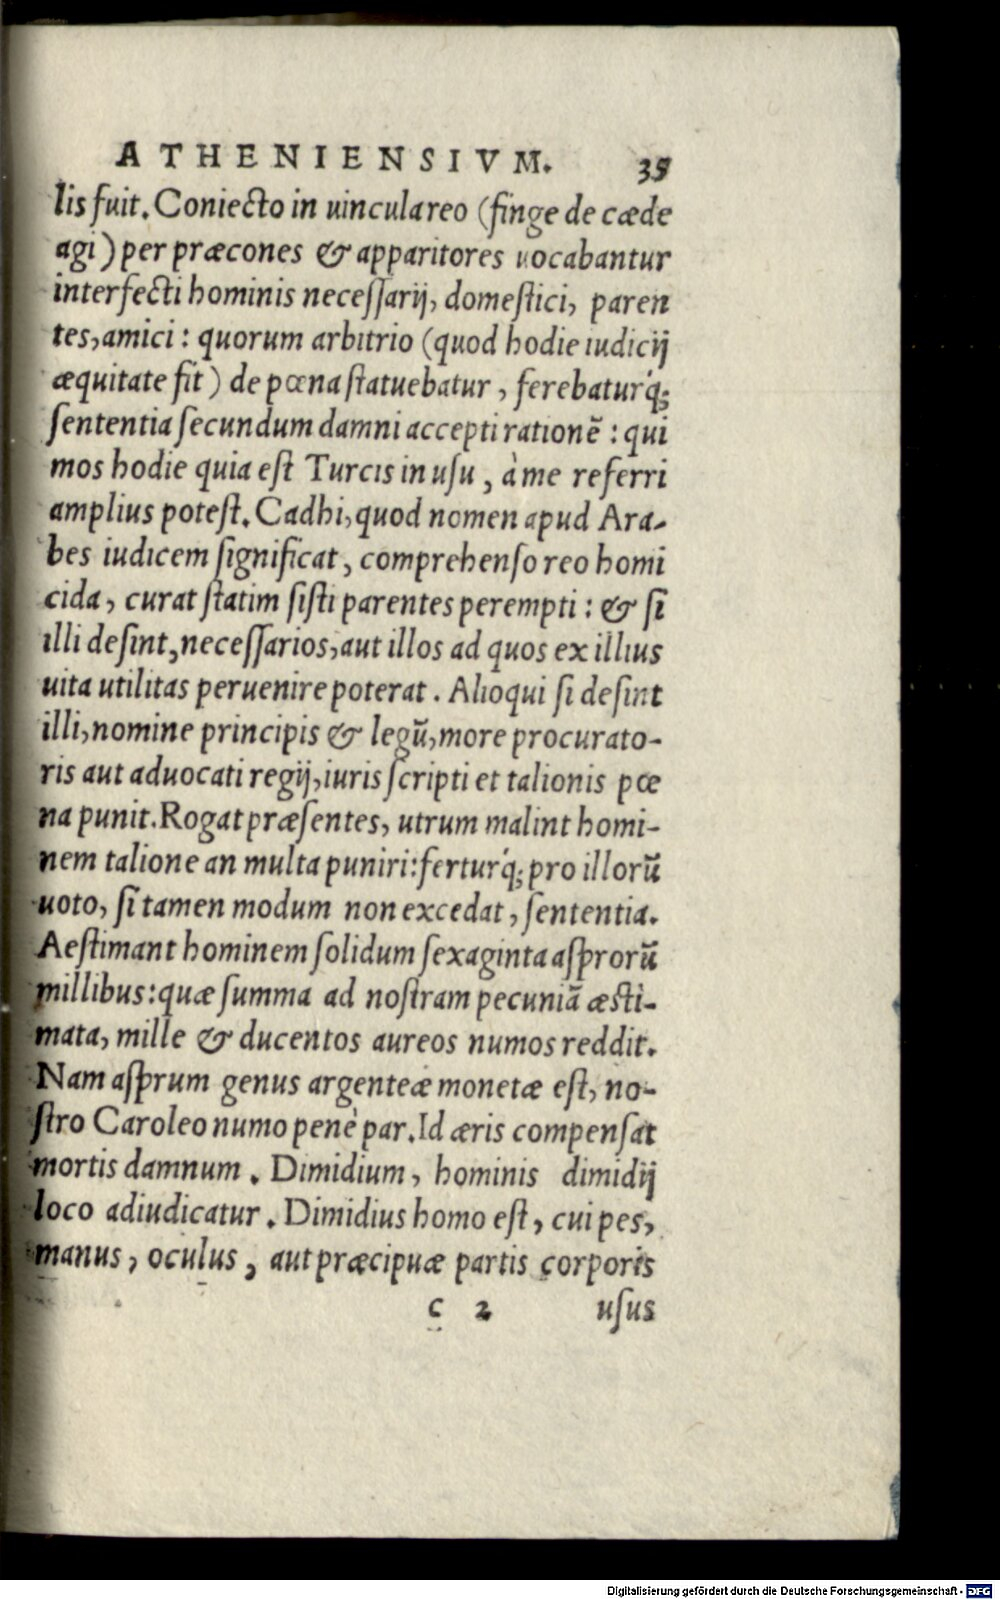 ATHENIENSIVM. 35
lis fuit. Coniecto in uincula reo (finge de cæde
agi) per præcones & apparitores uocabantur
interfecti hominis necessarij, domestici, paren
tes, amici: quorum arbitrio (quod hodie iudicij
æquitate fit) de pœna statuebatur, ferebaturq́;
sententia secundum damni accepti rationē: qui
mos hodie quia est Turcis in usu, à me referri
amplius potest. Cadhi, quod nomen apud Ara-
bes iudicem significat, comprehenso reo homi
cida, curat statim sisti parentes perempti: & si
illi desint, necessarios, aut illos ad quos ex illius
uita utilitas peruenire poterat. Alioqui si desint
illi, nomine principis & legū, more procurato-
ris aut aduocati regij, iuris scripti et talionis pœ
na punit. Rogat præsentes, utrum malint homi-
nem talione an multa puniri: ferturq́; pro illorū
uoto, si tamen modum non excedat, sententia.
Aestimant hominem solidum sexaginta asprorū
millibus: quæ summa ad nostram pecuniā æsti-
mata, mille & ducentos aureos numos reddit.
Nam asprum genus argenteæ monetæ est, no-
stro Caroleo numo penè par. Id æris compensat
mortis damnum. Dimidium, hominis dimidij
loco adiudicatur. Dimidius homo est, cui pes,
manus, oculus, aut præcipuæ partis corporis
c 2 usus
Digitalisierung gefördert durch die Deutsche Forschungsgemeinschaft - DFG